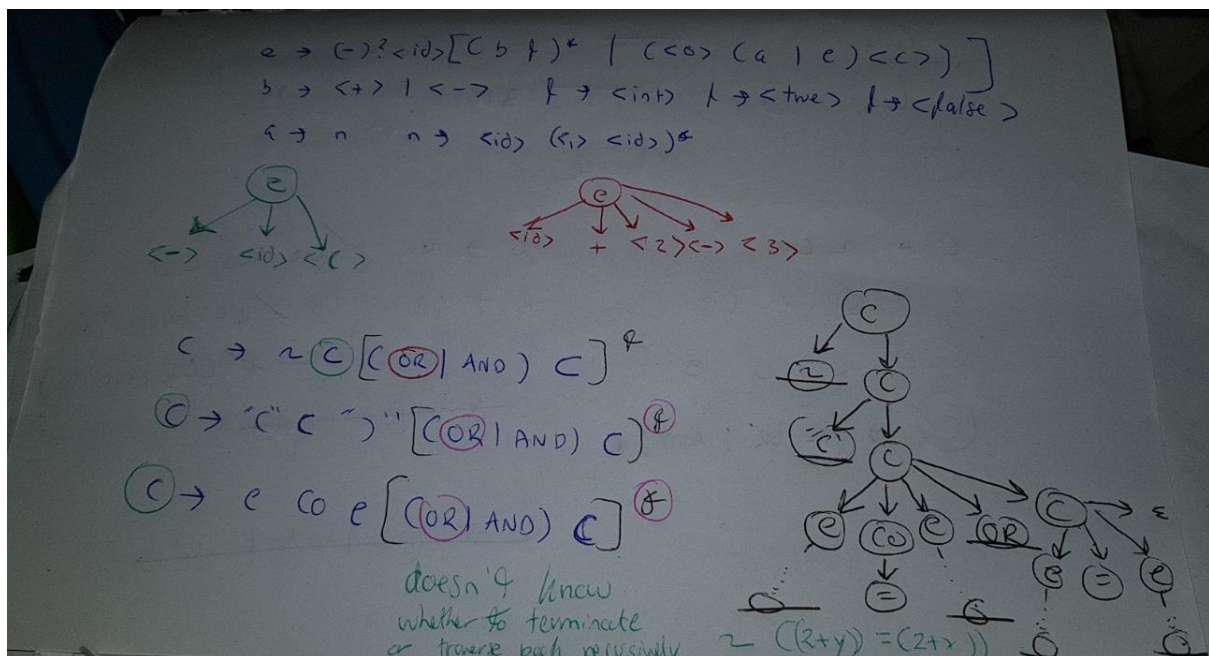 e → (-)? <id> [ ( b f )* | ( <o> ( a | e ) <c> ) ]
b → <+> | <-> f → <int> f → <true> f → <false>
a → n n → <id> (<,> <id>)*
e
<-> <id> <(>
e
<id> + <2> <-> <3>
C → ~ C [ ( OR | AND ) C ]*
C → "(" C ")" [ ( OR | AND ) C ]*
C → e CO e [ ( OR | AND ) C ]*
doesn't know
whether to terminate
or traverse back recusively
C
~ C
"(" C
e CO e OR C ε
= e = e
~ ((2+y)) = (2+x))